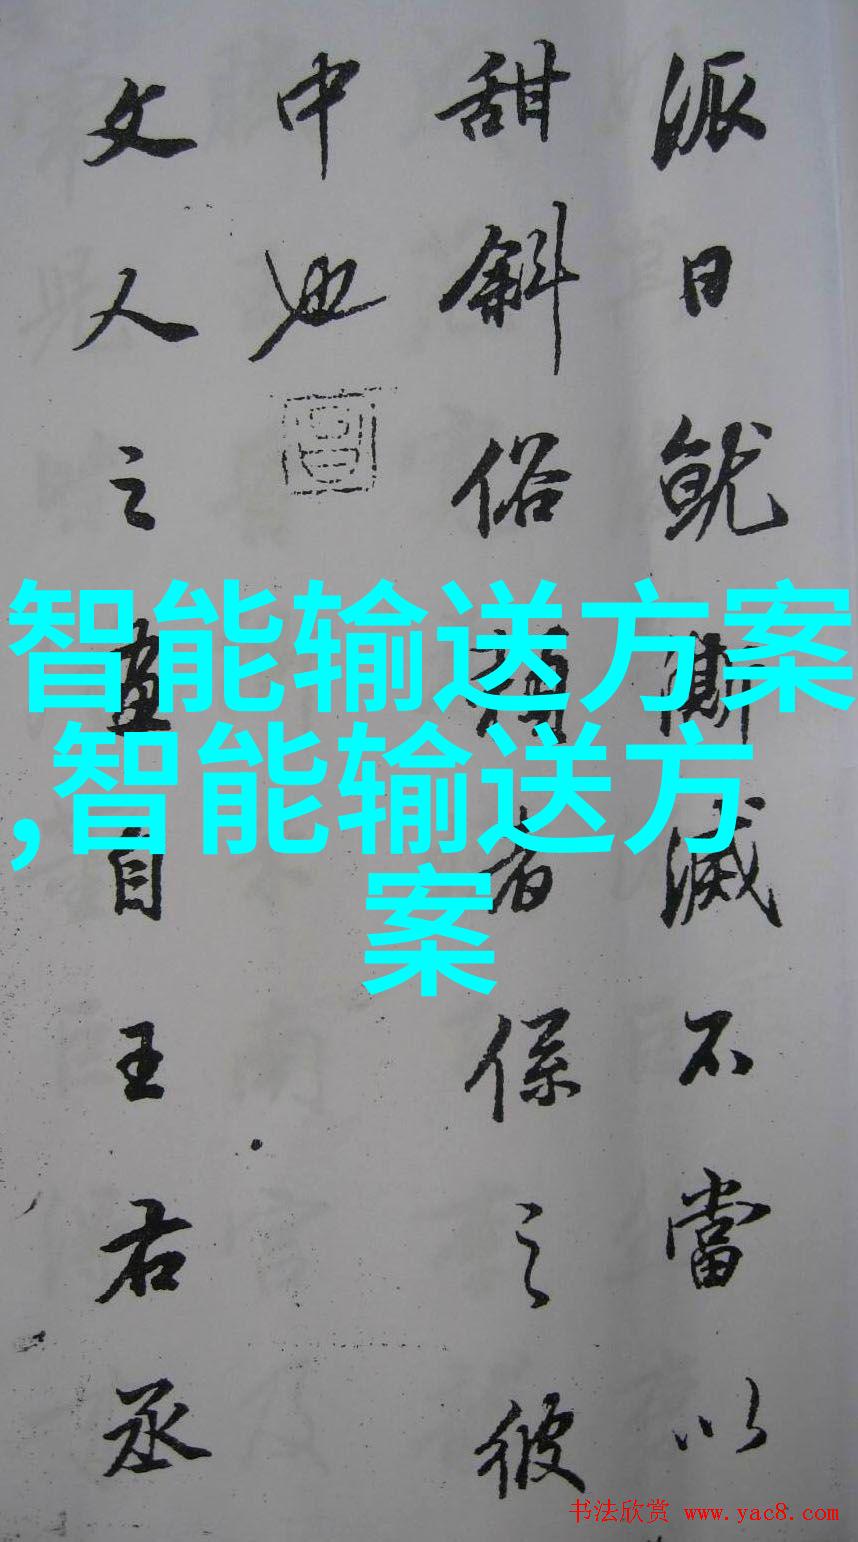 派日就澌滅不當以
甜斜俗賴者係之彼
中也
文人之畫自王右丞
智能输送方案
,智能输送方
案
书法欣赏 www.yac8.com